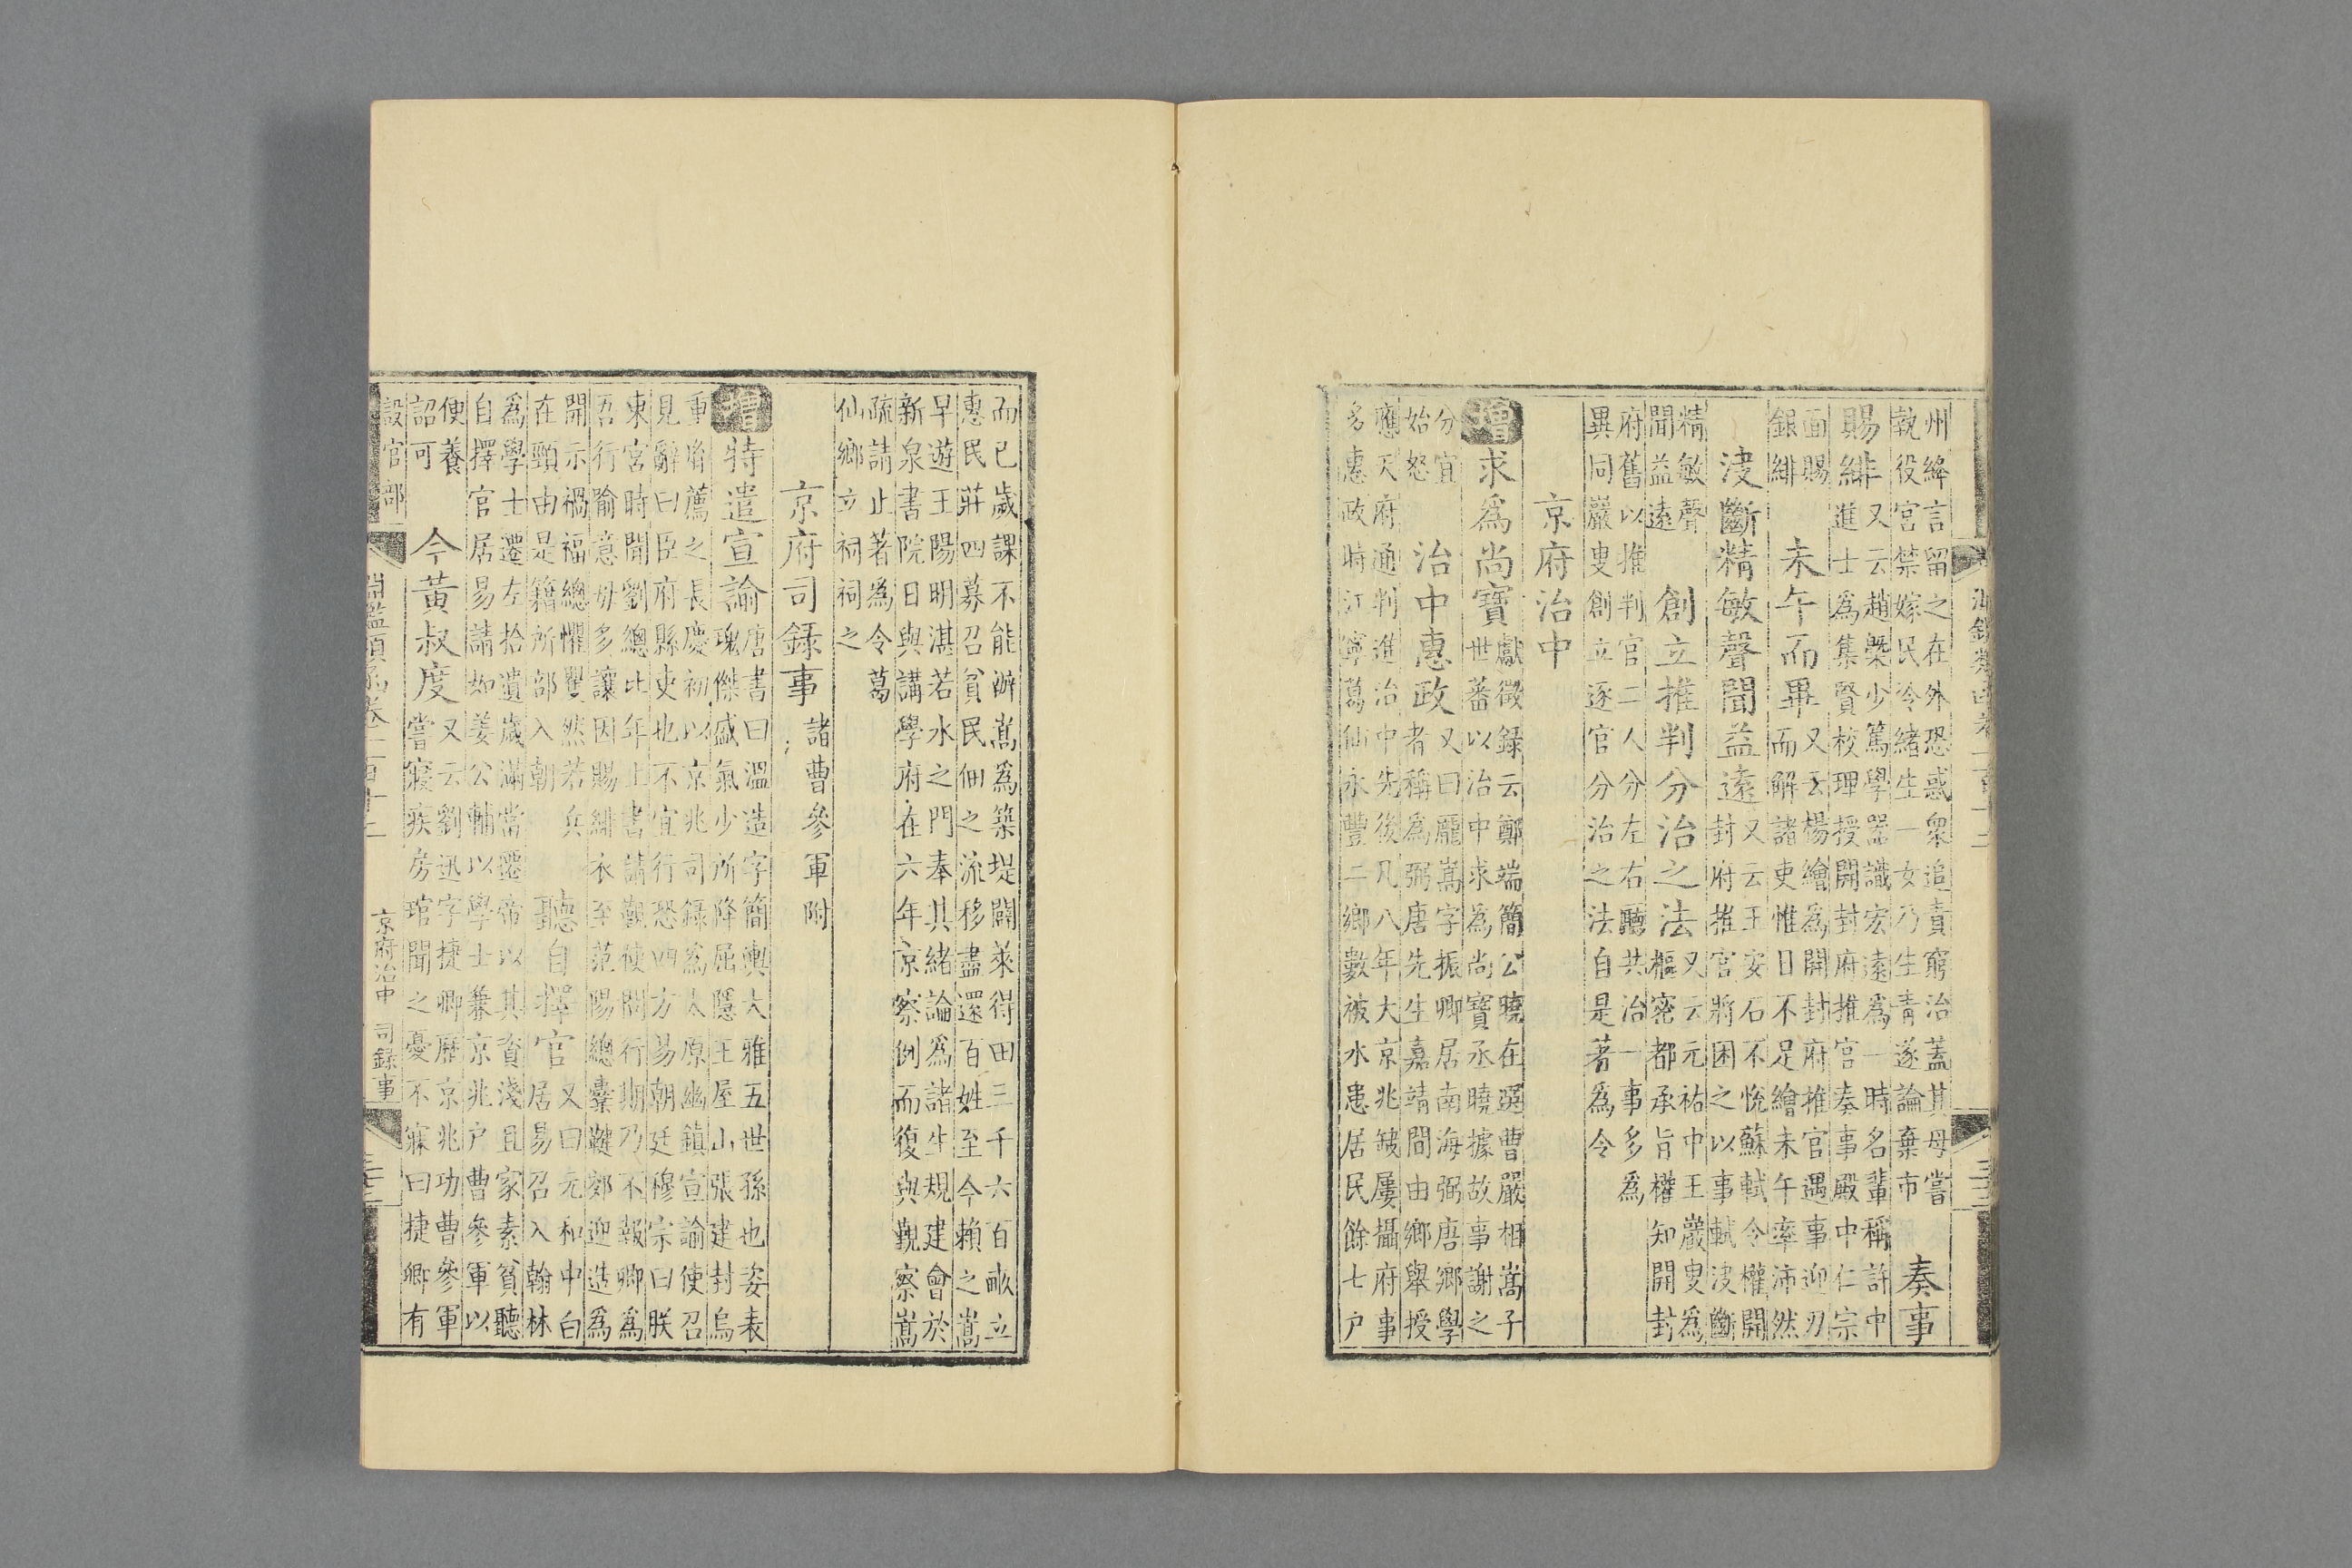 州絳言留之在外恐惑衆追責窮治蓋其母嘗
執役宮禁嫁民冷緒生一女乃生青遂論棄市　奏事
賜緋　又云趙槩少篤學器識宏遠爲一時名輩稱許中
進士爲集賢校理授開封府推官奏事殿中仁宗
面賜
銀緋　未午而畢　又云楊繪爲開封府推官遇事迎刃
而解諸吏惟日不足繪未午率沛然
決斷精敏聲聞益遠　又云王安石不悅蘇軾令權開
封府推官將困之以事軾決斷
精敏聲
聞益遠　創立推判分治之法　又云元祐中王巖叟爲
樞密都承旨權知開封
府舊以推判官二人分左右廳共治一事多爲
異同嚴叟創立逐官分治之法自是著爲令
京府治中
增求爲尚寶　獻徵錄云鄭端簡公曉在選曹嚴相嵩子
世蕃以治中求爲尚寶丞曉據故事謝之
分宜
始怒　治中惠政　又曰龐嵩字振卿居南海弼唐鄉學
者稱爲弼唐先生嘉靖間由鄉舉授
應天府通判進治中先後凡八年大京兆缺屢攝府事
多惠政時江寧葛仙永豐二鄉數被水患居民餘七户
而已歲課不能辦嵩爲築堤闢萊得田三千六百畝立
惠民莊四募召貧民佃之流移盡還百姓至今賴之嵩
早遊王陽明湛若水之門奉其緒論爲諸生規建會於
新泉書院日與講學府在六年京察例而復與覲察嵩
疏請止著爲令葛
仙鄉立祠祠之
京府司錄事　諸曹參軍附
增特遣宣諭　唐書曰溫造字簡輿大雅五世孫也姿表
瑰傑盛氣少所降屈隱王屋山張建封烏
重胤薦之長慶初以京兆司錄爲太原幽鎮宣諭使召
見辭曰臣府縣吏也不宜行恐四方易朝廷穆宗曰朕
東宮時聞劉總比年上書請覲使問行期乃不報卿爲
吾行喻意毋多讓因賜緋衣至范陽總櫜鞬郊迎造爲
開示禍福總懼矍然若兵
在頸由是籍所部入朝　聽自擇官　又曰元和中白
居易召入翰林
爲學士遷左拾遺歲滿當遷帝以其資淺且家素貧聽
自擇官居易請如姜公輔以學士兼京兆户曹參軍以
便養
詔可　今黃叔度　又云劉迅字捷卿歷京兆功曹參軍
嘗寢疾房琯聞之憂不寐曰捷卿有
設官部　淵鑑類函卷一百十二　京府治中　司錄事